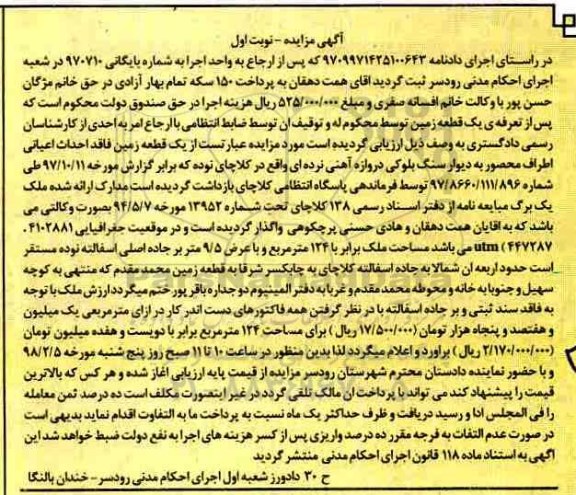 آگهی مزایده - نوبت اول
در راستای اجرای دادنامه ۹۷۰۹۹۷۱۴۲۵۱۰۰۶۴۳ که پس از ارجاع به واحد اجرا به شماره بایگانی ۹۷۰۷۱۰ در شعبه
اجرای احکام مدنی رودسر ثبت گردید اقای همت دهقان به پرداخت ۱۵۰ سکه تمام بهار آزادی در حق خانم مژگان
حسن پور با وکالت خانم افسانه صفری و مبلغ ۵۲۵/۰۰۰/۰۰۰ ریال هزینه اجرا در حق صندوق دولت محکوم است که
پس از تعرفه ی یک قطعه زمین توسط محکوم له و توقیف ان توسط ضابط انتظامی با ارجاع امر به احدی از کارشناسان
رسمی دادگستری به وصف ذیل ارزیابی گردیده است مورد مزایده عبارتست از یک قطعه زمین فاقد احداث اعیانی
اطراف محصور به دیوار سنگ بلوکی دروازه آهنی نرده ای واقع در کلاچای توده که برابر گزارش مورخه ۹۷/۱۰/۱۱ طی
شماره ۹۷/۸۶۶۰/۱۱۱/۸۹۶ توسط فرماندهی پاسگاه انتظامی کلاچای بازداشت گردیده است مدارک ارائه شده ملک
یک برگ مبایعه نامه از دفتر اسناد رسمی ۱۳۸ کلاچای تحت شماره ۱۳۹۵۲ مورخه ۹۴/۵/۷ بصورت وکالتی می
باشد که به اقایان همت دهقان و هادی حسنی پرچکوهی واگذار گردیده است و در موقعیت جغرافیایی ۴۱۰۲۸۸۱ .
۴۴۷۲۸۷ ) utm می باشد مساحت ملک برابر با ۱۲۴ متر مربع و با عرض ۹/۵ متر بر جاده اصلی اسفالته توده مستقر
است حدود اربعه ان شمالا به جاده اسفالته کلاچای به چابکسر شرقا به قطعه زمین محمد مقدم که منتهی به کوچه
سهیل و جنوبا به خانه و محوطه محمد مقدم و غربا به دفتر المینیوم دو جداره باقر پور ختم میگردد ارزش ملک با توجه
به فاقد سند ثبتی و بر جاده اسفالته با در نظر گرفتن همه فاکتورهای دست اندر کار در ازای متر مربعی یک میلیون
و هفتصد و پنجاه هزار تومان (۱۷/۵۰۰/۰۰۰ ریال ) برای مساحت ۱۲۴ متر مربع برابر با دویست و هفده میلیون تومان
(۲/۱۷۰/۰۰۰/۰۰۰ ریال ) براورد و اعلام میگردد لذا بدین منظور در ساعت ۱۰ تا ۱۱ صبح روز پنج شنبه مورخه ۹۸/۲/۵
و با حضور نماینده دادستان محترم شهرستان رودسر مزایده از قیمت پایه ارزیابی اغاز شده و هر کس که بالاترین
قیمت را پیشنهاد کند می تواند با پرداخت ان مالک تلقی گردد در غیر اینصورت مکلف است ده درصد ثمن معامله
را فی المجلس ادا و رسید دریافت و ظرف حداکثر یک ماه نسبت به پرداخت ما به التفاوت اقدام نماید بدیهی است
در صورت عدم التفات به فرجه مقرر ده درصد واریزی پس از کسر هزینه های اجرا به نفع دولت ضبط خواهد شد این
اگهی به استناد ماده ۱۱۸ قانون اجرای احکام مدنی منتشر گردید
ح ۳۰ دادورز شعبه اول اجرای احکام مدنی رودسر - خندان بالنگا